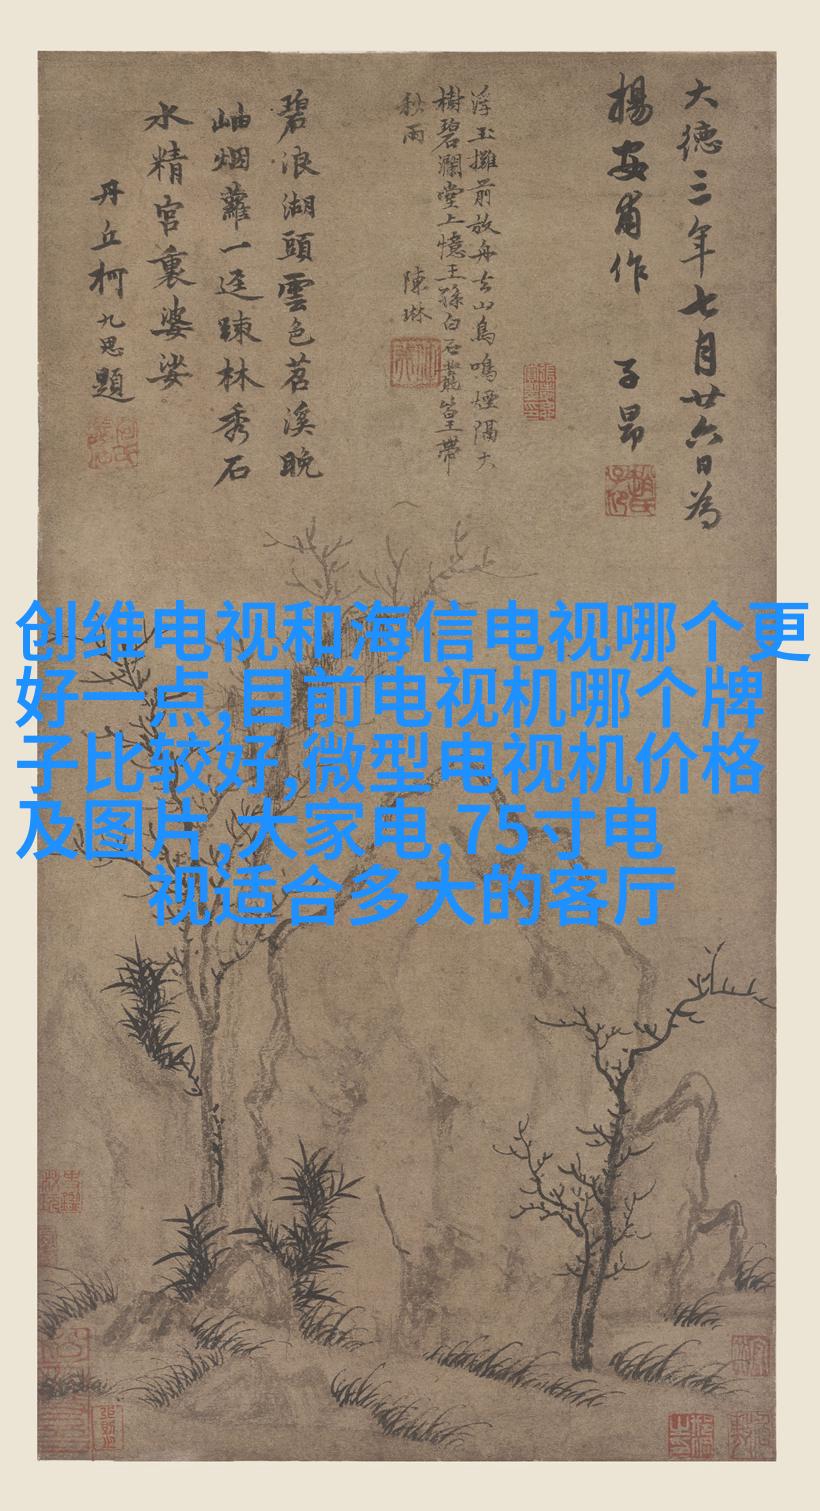 大德三年七月廿六日為
楊安甫作 子昂
浮玉攤前放舟去山鳥鳴煙隔大
樹碧瀾堂上憶王孫白石叢篁帶
秋雨 陳琳
碧浪湖頭雲色苕溪晚
岫烟蘿一逕踈林秀石
水精宮裏婆娑
丹丘柯九思題
创维电视和海信电视哪个更
好一点,目前电视机哪个牌
子比较好,微型电视机价格
及图片,大家电,75寸电
视适合多大的客厅